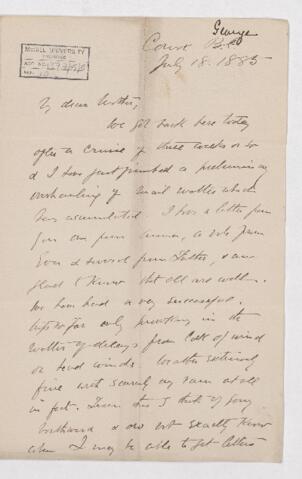 George
McGILL UNIVERSITY
ACC. NO.
REF.
Comox B.C.
July 18. 1885
My dear Mother,
We got back here today
after a cruise of three weeks or so
& I have just finished a preliminary
overhauling of mail matter which
has accumulated. I have a letter from
you one from Anna, a note from
Eva & several from Father, & am
glad to know that all are well.
We have had a very successful
trip so far only in the
matter of delays from lack of wind
or head winds. Weather extremely
fine with scarcely any rain at all
in fact. From this I think of going
northward & do not exactly know
when I may be able to get letters